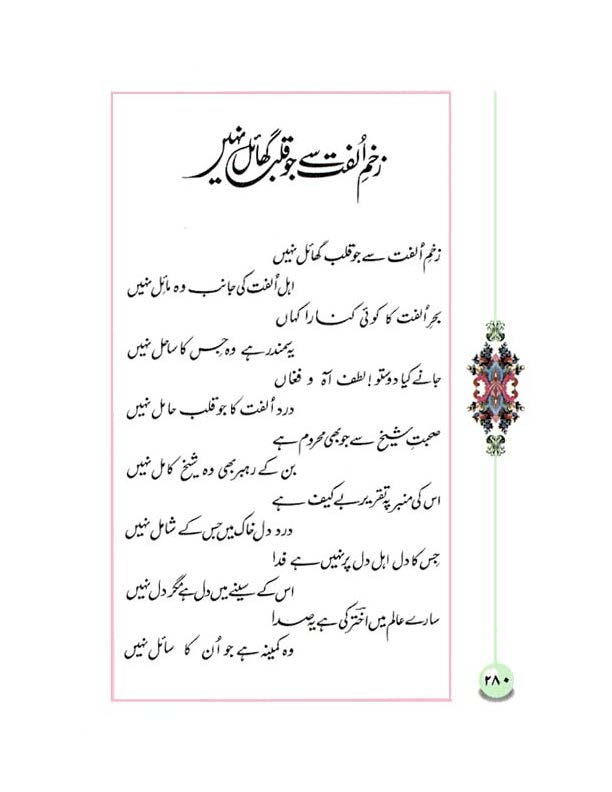 زخمِ اُلفت سے جو قلب گھائل نہیں
زخمِ اُلفت سے جو قلب گھائل نہیں
اہلِ اُلفت کی جانب وہ مائل نہیں
بحرِ اُلفت کا کوئی کنارا کہاں
یہ سمندر ہے وہ جس کا ساحل نہیں
جانے کیا دوستو! لطف آہ و فغاں
دردِ اُلفت کا جو قلب حامل نہیں
صحبتِ شیخ سے جو بھی محروم ہے
بن کے رہبر بھی وہ شیخ کامل نہیں
اس کی منبر پہ تقریر بے کیف ہے
دردِ دل خاک میں جس کے شامل نہیں
جس کا دل اہلِ دل پر نہیں ہے فدا
اس کے سینے میں دل ہے مگر دل نہیں
سارے عالم میں اخترؔ کی ہے یہ صدا
وہ کمینہ ہے جو اُن کا سائل نہیں
۲۸۰